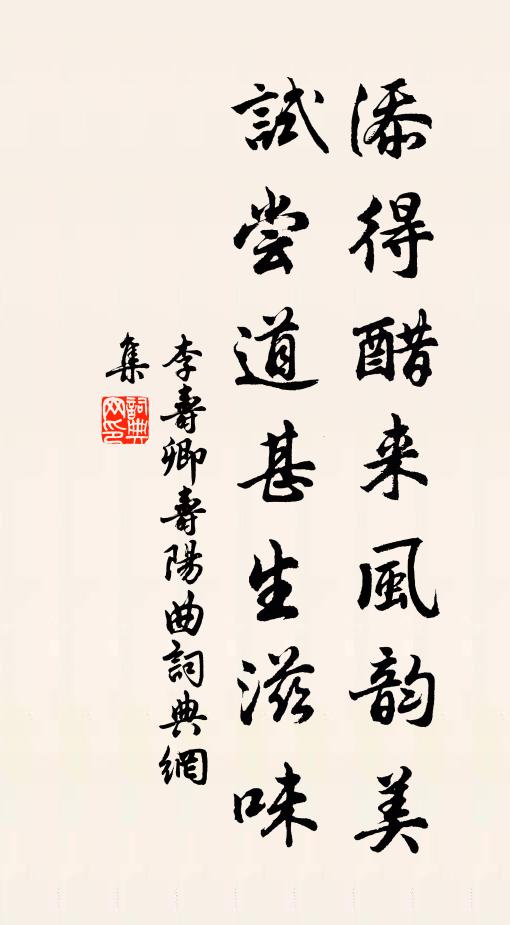 添得醋来風韵美
試尝道甚生滋味
李壽卿壽陽曲詞典網
集
詞典网印